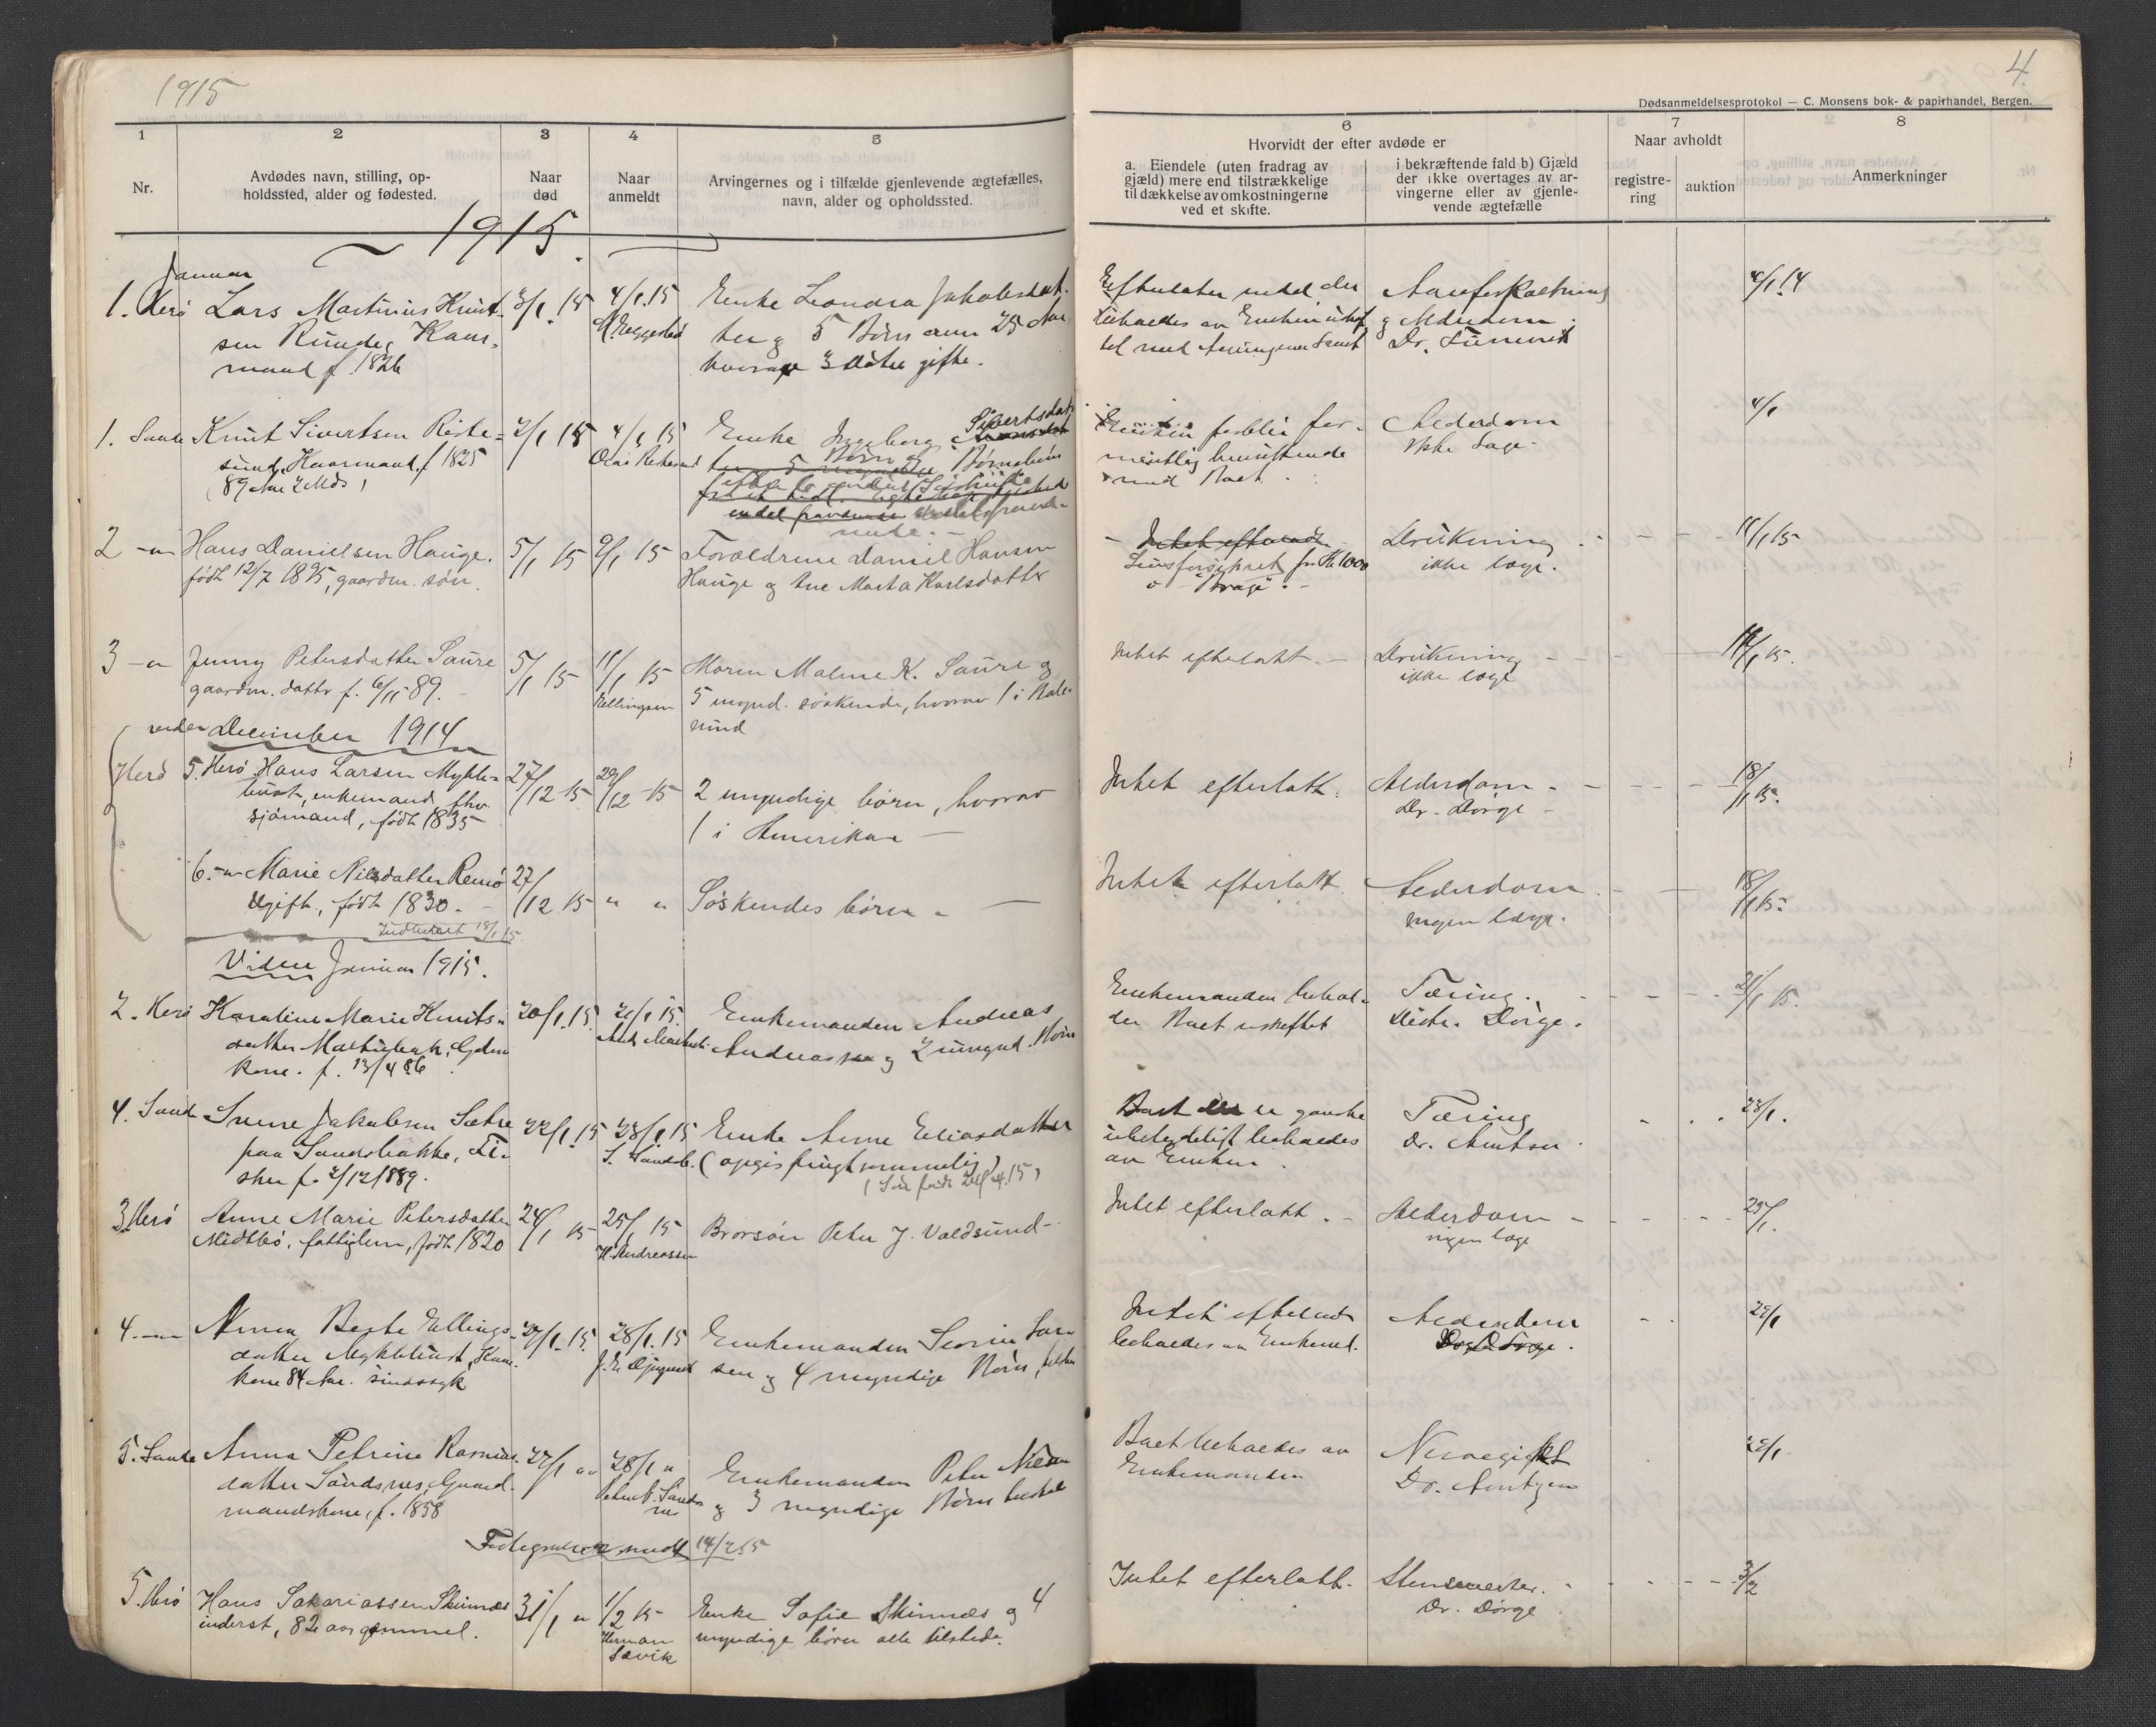 1915
4.
Dødsanmeldelsesprotokol — C. Monsens bok- & papirhandel, Bergen.
1
2
3
4
5
6
7
8
Nr.
Avdødes navn, stilling, op-
holdssted, alder og fødested.
Naar
død
Naar
anmeldt
Arvingernes og i tilfælde gjenlevende ægtefælles,
navn, alder og opholdssted.
Hvorvidt der efter avdøde er
a. Eiendele (uten fradrag av
gjæld) mere end tilstrækkelige
til dækkelse av omkostningerne
ved et skifte.
i bekræftende fald b) Gjæld
der ikke overtages av ar-
vingerne eller av gjenle-
vende ægtefælle
Naar avholdt
registre-
ring
auktion
Anmerkninger
1915.
Januar
1. Herö Lars Martinus Knut-
sen Runde, Kaar-
mand f. 1826
3/1 15
4/1.15
Enke Leonora Jakobsdat-
ter og 5 Børn over 25 Aar
hvorav 3 Døtre gifte.
Efterlater
Dr.
4/1 14
1. Sande Knut Sivertsen Riste-
sund, Kaarmand, f 1825
(89 Aar 2 Mds)
2/1 15
4/1 15
Enke Ingeborg Sivertsdat
Børn og Børnebørn
Enken forblir for-
med Boet.
Alderdom
Ikke Læge
4/1
2 -"- Hans Danielsen Hauge.
født 12/7 1895, gaardm. søn.
5/1 15
9/1 15
Forældrene Daniel Hansen
Hauge og Ane Marta Karlsdatter
- Intet efterladt
Livsforsikret for Kr 1000
i "Brage". -
Drukning
ikke læge.
11/1 15
3 -"- Jenny Petersdatter Saure
gaardm. datter f. 6/11 89.
5/1 15
11/1 15
Ellingsen
Moren Maline K. Saure og
5 mynd. söskende, hvorav 1 i Aale-
sund
Intet efterlatt. -
Drukning
ikke læge
11/1 15.
videre December 1914
Herö 5. Herö Hans Larsen Mykle-
bust, enkemand, fhv.
sjömand, född 1835
27/12 15
29/12 15
2 myndige børn, hvorav
1 i Amerika -
Intet efterlatt.
Alderdom -
Dr. Dörge -
18/1 15.
6. -"- Marie Nilsdatter Remö
Ugift, født 1830. -
27/12 15
" "
Søskendes børn -
Intet efterlatt.
Alderdom
ingen læge.
18/1 15.
Indberett 18/1 15.
Videre Januar 1915.
2. Herö Karoline Marie Knuts-
datter
kone. f. 13/4 86
20/1.15.
21/1 15.
Enkemanden Andreas
Andreassen og 2 umynd. Børn
Enkemanden behol-
der Boet uskiftet
Tæring.
Distr. Dörge.
21/1 15.
4. Sande Sverre Jakobsen Sætre
paa Sandsbakke, Fi-
sker f. 2/12/1889.
22/1.15
23/1.15
S. Sandsb.
Enke Anne Eliasdatter
(opgis frugtsommelig)
Boet er ganske
ubetydeligt beholdes
av Enken
Tæring
Dr. Arntzen
23/1.
3 Herö Anne Marie Petersdatter
Midtbö, fattiglem, født 1820
24/1 15
25/1 15
H. Andreassen
Brorsön Peter J. Voldsund -
Intet efterlatt. -
Alderdom -
ingen læge
25/1.
4. -"- Anna Berte Ellings-
datter Myklebust, Kaar-
kone 84 Aar. sindssyk
27/1.15.
28/1.15
Enkemanden Severin Lar-
sen og 4 myndige Børn,
Intet efterladt
beholdes av Enkemd.
Alderdom
29/1
5. Sande Anna Petrine Rasmus-
datter Sandsnes, Gaard-
mandskone, f. 1858
27/1 "
28/1 "
Enkemanden Peter
og 3 myndige Børn
Boet beholdes av
Enkemanden
Dr. Arntzen
29/1.
14/2 15
5. Herö Hans Sakariassen Skinnes
inderst, 82 aar gammel.
31/1 "
1/2 15
Herman
Sævik
Enke Sofie Skinnes og 4
myndige börn alle tilstede.
Intet efterlatt.
Dr. Dörge
3/2